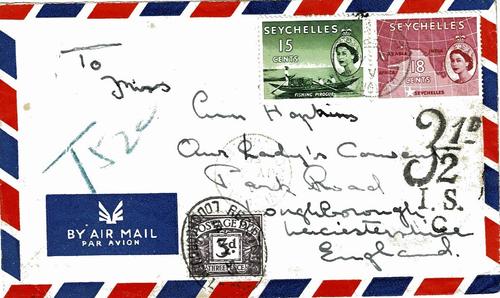 SEYCHELLES
15
CENTS
FISHING PIROGUE
SEYCHELLES
ARABIA
INDIA
18
CENTS
SEYCHELLES
To
Miss
Ann Hopkins
Our Lady's Convent
Park Road
Loughborough
Leicestershire
England.
T 520
3 1/2 D
I.S.
BY AIR MAIL
PAR AVION
POSTAGE DUE
3d
THREE PENCE
LOUGHBOROUGH